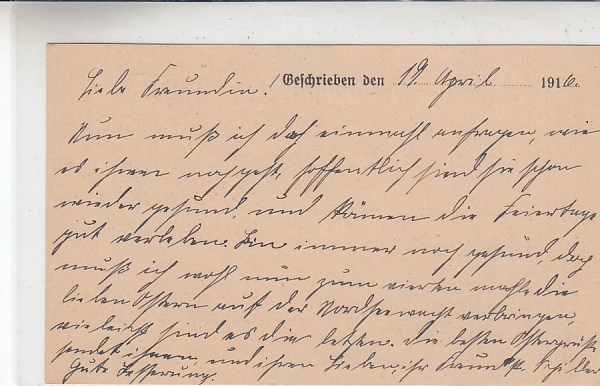 Liebe Freundin! Geschrieben den 19. April 1916.
Nun muß ich doch einmahl anfragen, wie
es ihnen noch geht, hoffentlich sind sie schon
wieder gesund, und können die Feiertage
gut verleben. Bin immer noch gesund, doch
muß ich wohl nun zum vierten mahle die
lieben Ostern auf der Nordseewacht verbringen,
vieleicht sind es die letzten. Die besten Ostergrüße
sendet ihnen und ihren Lieben ihr Freund
Gute Besserung.